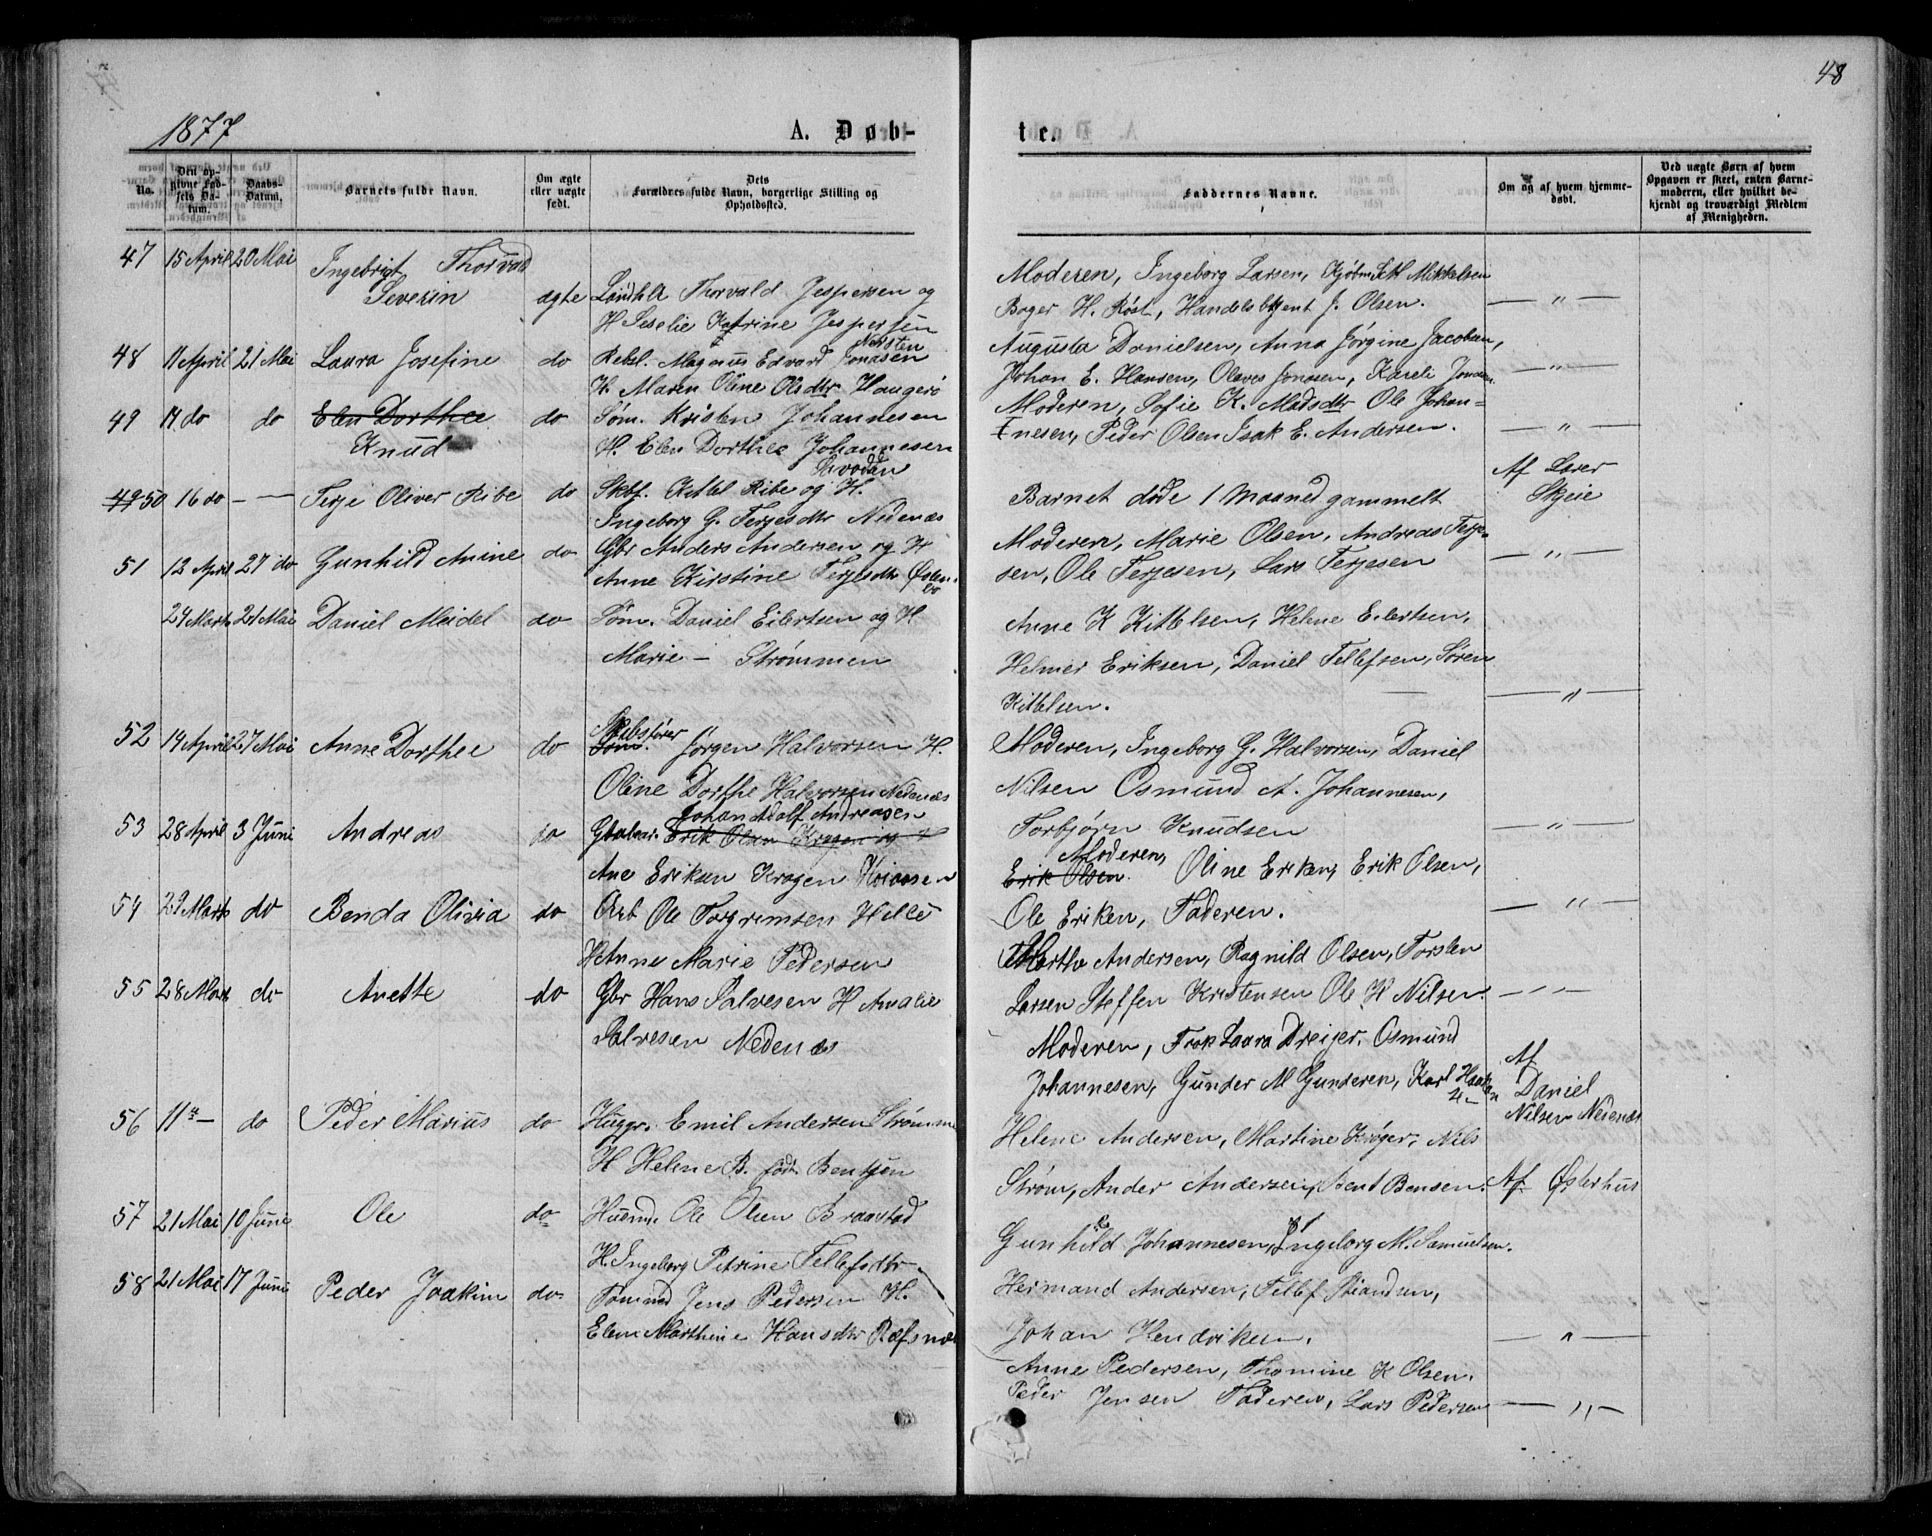 48
1877
A. Døb-
te.
No.
Den opgivne Fødsels Datum.
Daabs-Datum.
Barnets fulde Navn.
Om ægte eller uægte født.
Dets Forældres fulde Navn, borgerlige Stilling og Opholdssted.
Faddernes Navne.
Om og af hvem hjemmedøbt.
Ved uægte Børn af hvem Opgaven er skeet, enten Barnemoderen, eller hvilket bekjendt og troværdigt Medlem af Menigheden.
47 15 April 20 Mai Ingebrigt Thorvald
Severin ægte Landh Thorvald Jespersen og
H Katrine Jespersen
Moderen, Ingeborg Larsen, Mikkelsen
Bager H. Røst, J. Olsen. — " —
48 11 April 21 Mai Laura Josefine do Rebsl. Magnus Edvard Jonasen
K. Maren Oline Olsdtr Haugerø
Augusta Danielsen, Anna Jørgine Jacobsen,
Johan E. Hansen, Olaves Jonasen, Kareli — " —
49 14 do do Elen Dorthee do Søm. Kristen Johannesen
Knud H. Elen Dorthee Johannesen
Moderen, Sofie K. Madsdtr Ole Johan=
nesen, Peder Olsen Isak E. Andersen. — " —
49 50 16 do — — Terje Oliver Ribe do Skbf. Kittel Ribe og H.
Ingeborg G. Terjesdtr Nedenæs
Barnet døde 1 Maaned gammelt
Af Laxer
Skjeie
51 12 April 27 do Gunhild Anine do Gbr Anders Andersen og H
Anne Kirstine Terjesdtr
Moderen, Marie Olsen, Andreas Terje-
sen, Ole Terjesen, Lars Terjesen — " —
24 Marts 21 Mai Daniel Meidel do Søm. Daniel Eilertsen og H
Marie — Strømmen
Anne K Kittelsen, Helene Eilertsen,
Helmer Eriksen, Daniel Tellefsen, Søren
Kittelsen. — " —
52 14 April 27 Mai Anne Dorthee do Skibsfører
Søm. Jørgen Halvorsen H.
Oline Dorthe Halvorsen Nedenæs
Moderen, Ingeborg G. Halvorsen, Daniel
Nilsen Osmund A. Johannesen,
Torbjørn Knudsen — " —
53 28 April 3 Juni Andreas do Johan Adolf Andreasen
Erik Olsen Krogen og H
Ane Eriksen Krogen
Moderen,
Erik Olsen. Oline Eriken, Erik Olsen,
Ole Eriken, Faderen. — " —
54 29 Marts do Benda Olivia do Arb Ole Torgrimsen Helle
H Anne Marie Pedersen
Martha Andersen, Ragnild Olsen, Torsten
Larsen Steffen Kristensen Ole H Nilsen. — " —
55 28 Marts do Anette do Gbr Hans Salvesen H Amalie
Salvesen Nedenæs
Moderen, Frøk Laura Dreijer, Osmund
Johannesen, Gunder M Gunderen, Karl
Af
Daniel
Nilsen Nedenæs
56 11te — do Peder Marius do Emil Andersen Strømme
H Helene B. født Bentsen
Helene Andersen, Martine Krøger, Nils
Strøm, Ander Andersen, Bent Bensen. Af Østerhus
57 21 Mai 10 Juni Ole do Husmd. Ole Olsen Braastad
H. Ingeborg Petrine Tellefsdtr
Gunhild Johannesen, Ingeborg M. Samuelsen.
Hermand Andersen, Tellef
Johan Hendriksen. — " —
58 21 Mai 17 Juni Peder Joakim do Tømmd Jens Pedersen H.
Elene Marthine Hansdtr Ræfsnæs
Anne Pedersen, Thomine K Olsen.
Peder Jensen Faderen, Lars Pedersen — " —